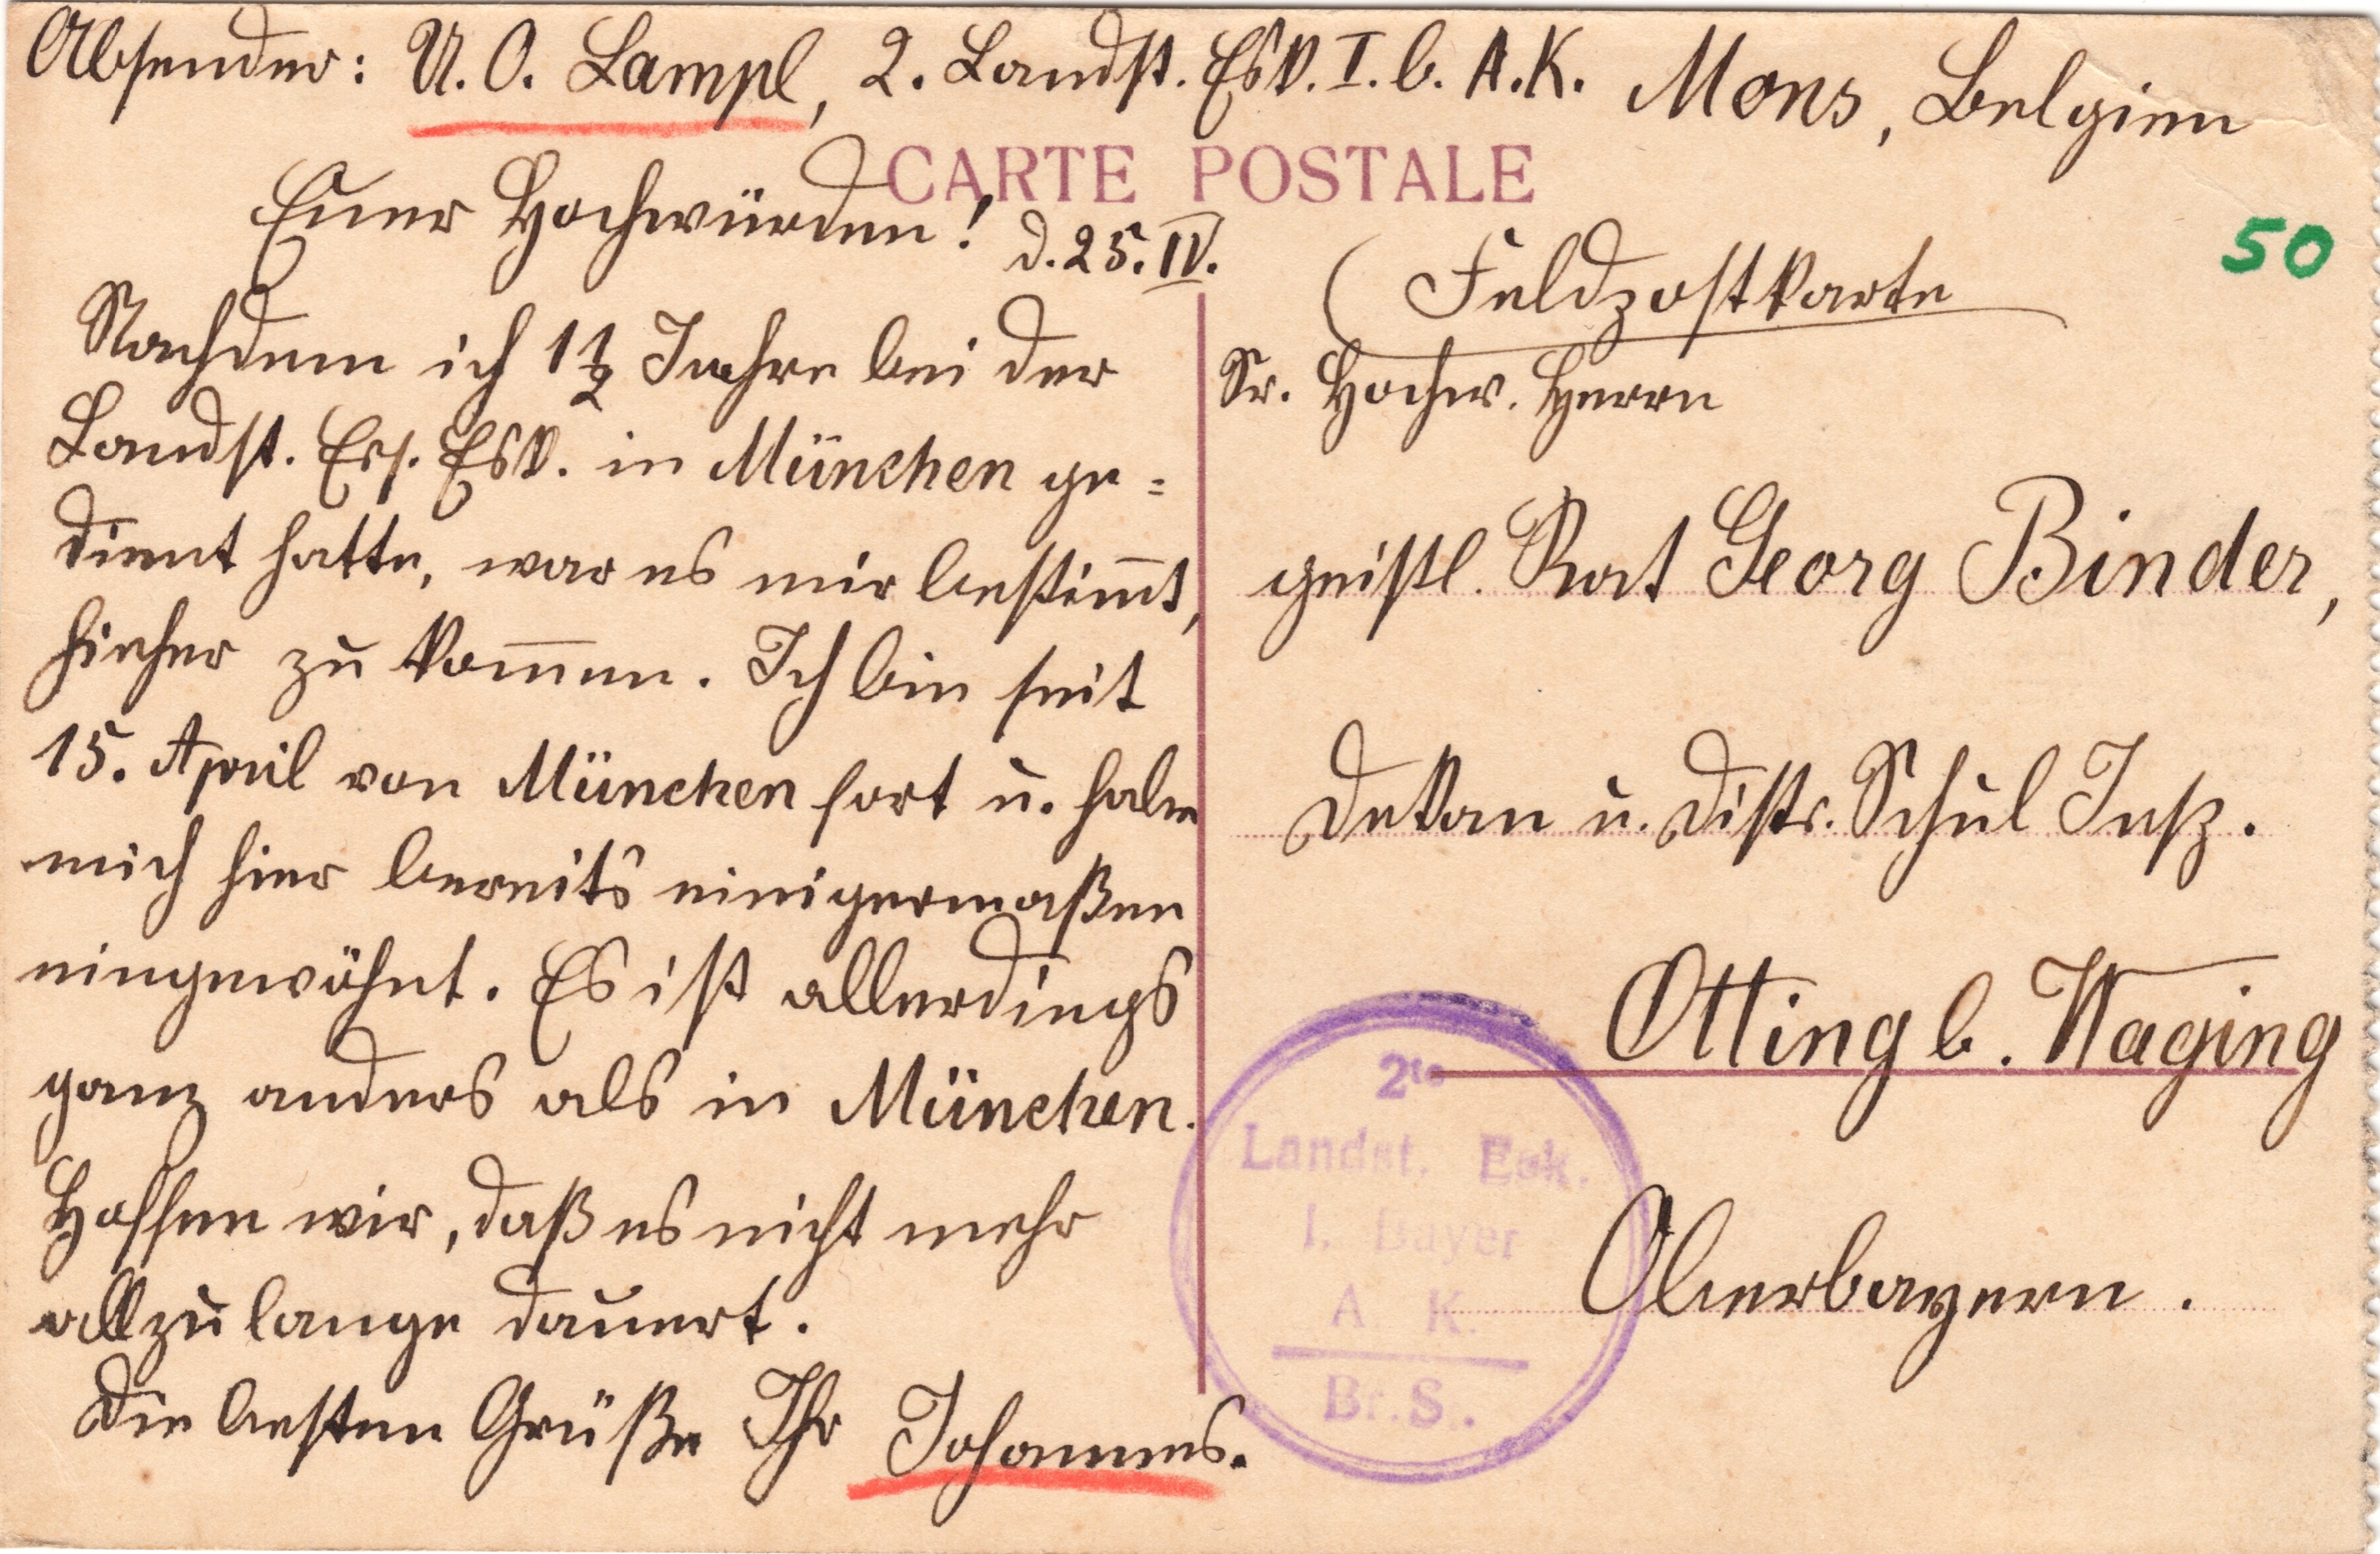 Absender: U. O. Lampl, 2. Landst. Esk. I. b. A.K. Mons, Belgien
CARTE POSTALE
Euer Hochwürden!
d. 25. IV.
Nachdem ich 1 1/2 Jahre bei der
Landst. Ers. Esk. in München ge=
dient hatte, war es mir bestim̅t,
hieher zu kom̅en. Ich bin seit
15. April von München fort u. habe
mich hier bereits einigermaßen
eingewöhnt. Es ist allerdings
ganz anders als in München.
Hoffen wir, daß es nicht mehr
allzulange dauert.
Die besten Grüße Ihr Johannes.
50
Feldpostkarte
Sr. Hochw. Herrn
geistl. Rat Georg Binder,
Dekan u. Distr. Schul Insp.
Otting b. Waging
Oberbayern.
2te
Landst. Esk.
I. Bayer
A K.
Br. S.